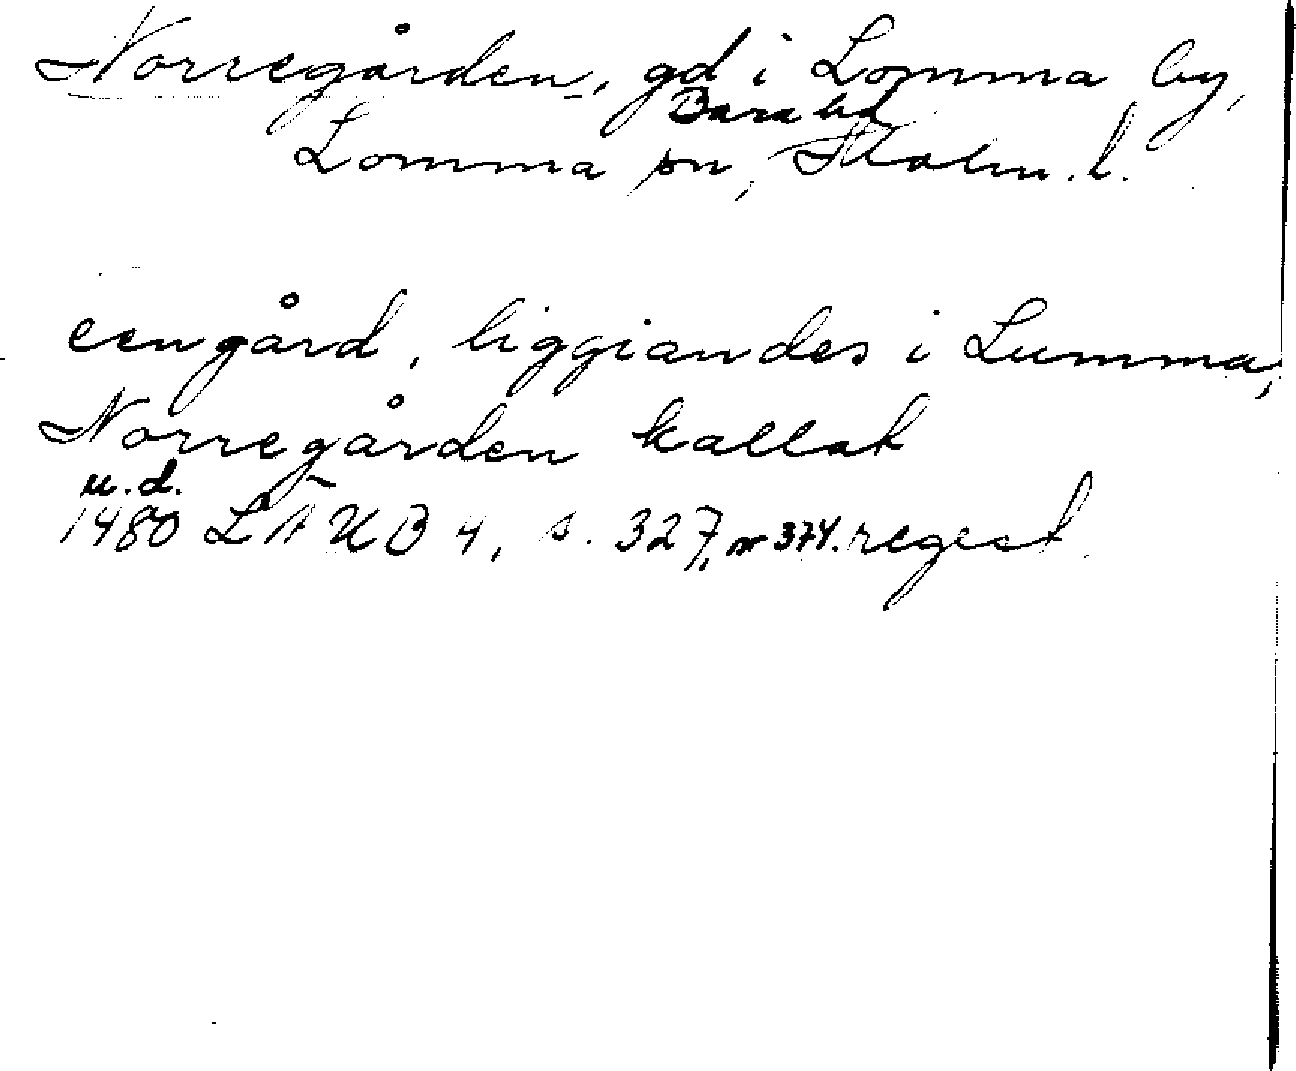 Norregården, gd i Lomma by,
Bara hd
Lomma sn, Malm. l.
een gård, liggiandes i Lumma,
Norregården kallat
u.d.
1480 LÄUB 4, s. 327, nr 374. regest